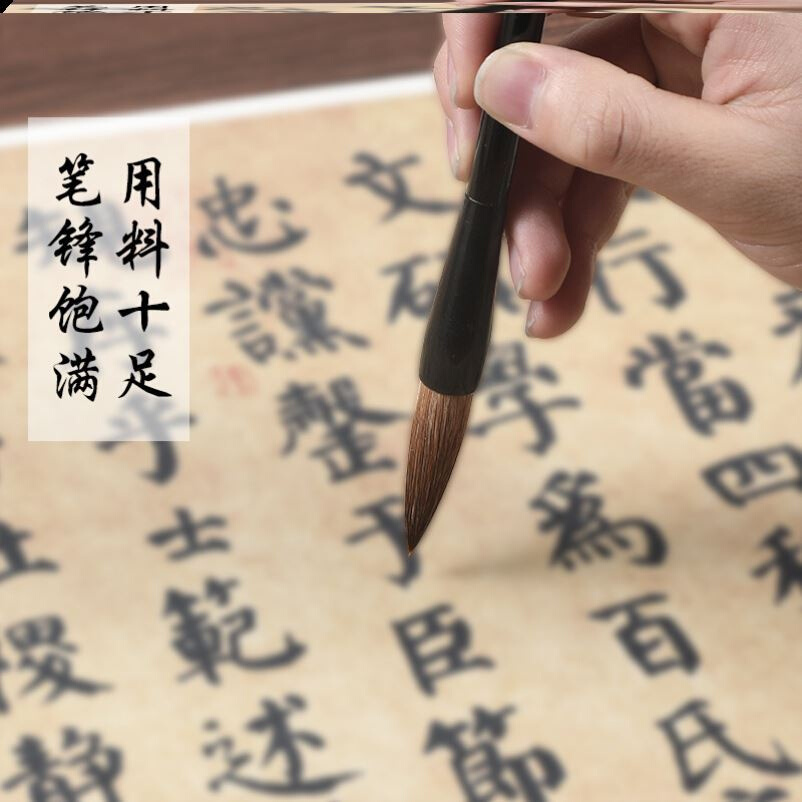 用料十足
笔锋饱满
行當四
文學爲百氏
忠讜罄于臣節
乎士範述
社稷靜